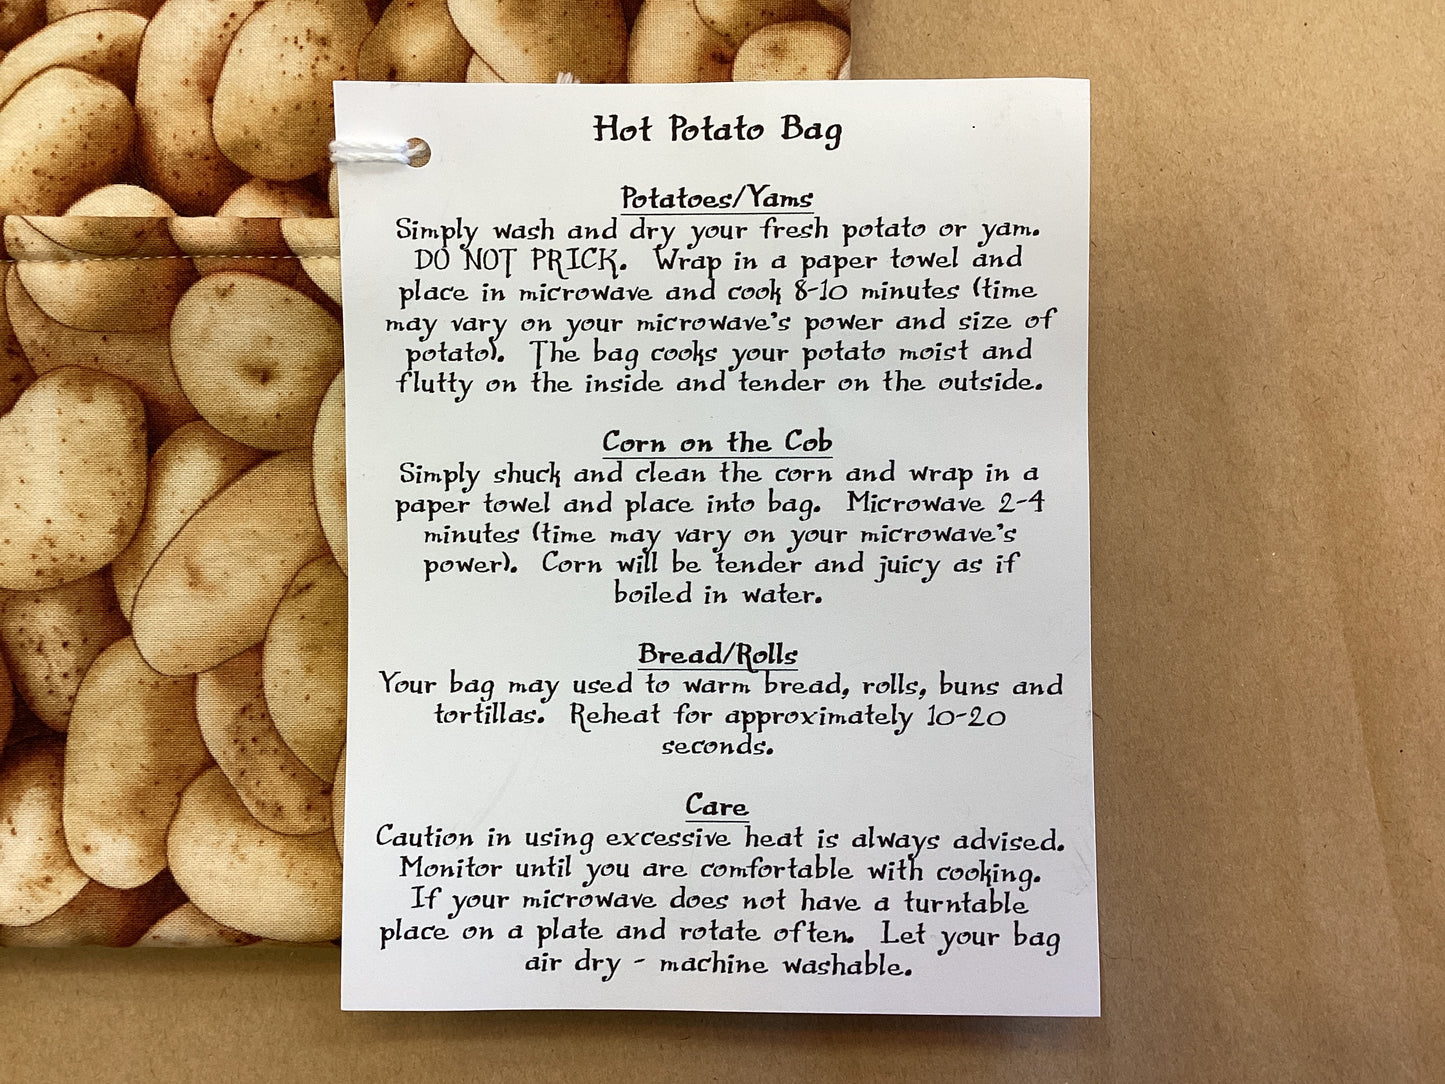 Hot Potato Bag
Potatoes/Yams
Simply wash and dry your fresh potato or yam.
DO NOT PRICK. Wrap in a paper towel and
place in microwave and cook 8-10 minutes (time
may vary on your microwave's power and size of
potato). The bag cooks your potato moist and
flutty on the inside and tender on the outside.
Corn on the Cob
Simply shuck and clean the corn and wrap in a
paper towel and place into bag. Microwave 2-4
minutes (time may vary on your microwave's
power). Corn will be tender and juicy as if
boiled in water.
Bread/Rolls
Your bag may used to warm bread, rolls, buns and
tortillas. Reheat for approximately 10-20
seconds.
Care
Caution in using excessive heat is always advised.
Monitor until you are comfortable with cooking.
If your microwave does not have a turntable
place on a plate and rotate often. Let your bag
air dry - machine washable.